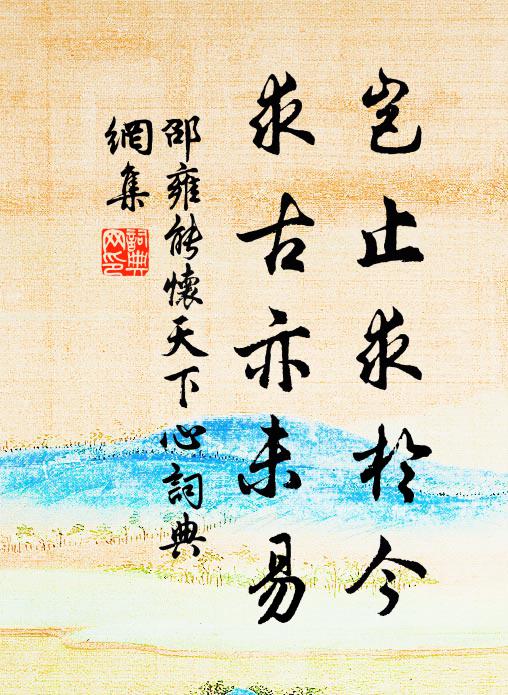 豈止求於今
求古亦未易
邵雍能懷天下心詞典
網集
詞典
网印